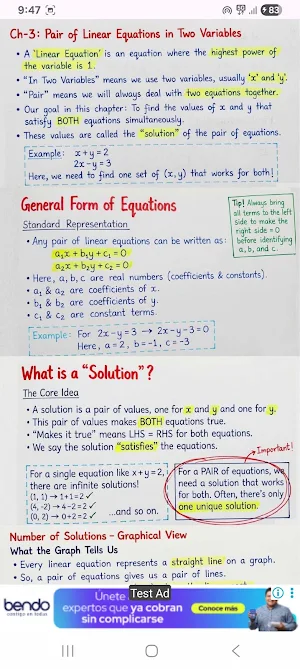 9:47
83
Ch-3: Pair of Linear Equations in Two Variables
• A 'Linear Equation' is an equation where the highest power of
the variable is 1.
• "In Two Variables" means we use two variables, usually 'x' and 'y'.
• "Pair" means we will always deal with two equations together.
• Our goal in this chapter: To find the values of x and y that
satisfy BOTH equations simultaneously.
• These values are called the "solution" of the pair of equations.
Example: x + y = 2
2x - y = 3
Here, we need to find one set of (x, y) that works for both!
General Form of Equations
Tip! Always bring
all terms to the left
side to make the
right side = 0
before identifying
a, b, and c.
Standard Representation
• Any pair of linear equations can be written as:
a₁x + b₁y + c₁ = 0
a₂x + b₂y + c₂ = 0
• Here, a, b, c are real numbers (coefficients & constants).
• a₁ & a₂ are coefficients of x.
• b₁ & b₂ are coefficients of y.
• c₁ & c₂ are constant terms.
Example: For 2x - y = 3 → 2x - y - 3 = 0
Here, a = 2, b = -1, c = -3
What is a "Solution"?
The Core Idea
• A solution is a pair of values, one for x and y and one for y.
• This pair of values makes BOTH equations true.
• "Makes it true" means LHS = RHS for both equations.
• We say the solution "satisfies" the equations.
Important!
For a single equation like x + y = 2,
there are infinite solutions!
(1, 1) → 1+1=2 ✓
(4, -2) → 4-2=2 ✓
(0, 2) → 0+2=2 ✓ ...and so on.
For a PAIR of equations, we
need a solution that works
for both. Often, there's only
one unique solution.
Number of Solutions - Graphical View
What the Graph Tells Us
• Every linear equation represents a straight line on a graph.
• So, a pair of equations gives us a pair of lines.
Test Ad
bendo
contigo en todas
Únete
expertos que ya cobran
sin complicarse
Conoce más